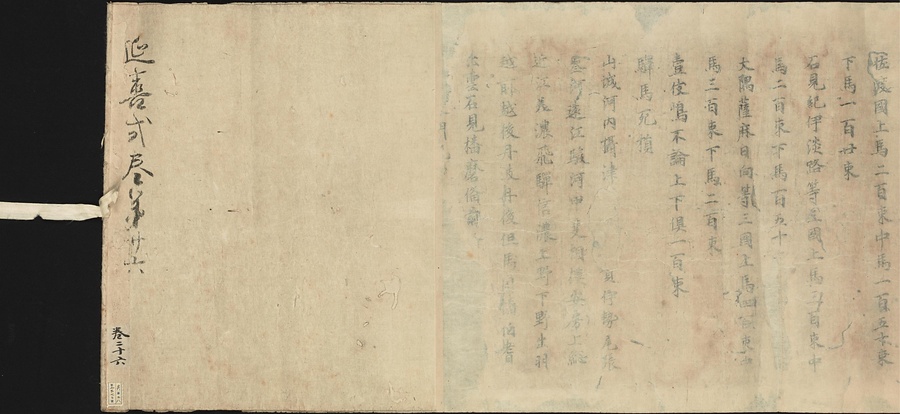 國上馬二百束中馬一百五十束
下馬一百廿束
石見紀伊淡路等國上馬三百束中
馬二百束下馬百五十
大隅薩麻日向等三國上馬四百束中
馬三百束下馬二百束
壹伎嶋不論上下倶一百束
驛馬死損
山城河内攝津 賀伊勢尾張
參河遠江駿河甲斐相摸 安房上総
近江美濃飛驒信濃上野下野出羽
越前越後丹波丹後但馬因幡伯耆
出雲石見播磨備前
延喜式卷第廿六
卷二十六